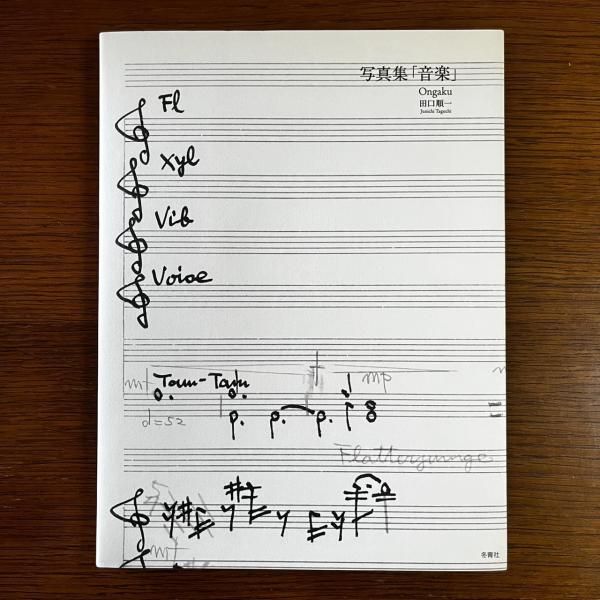 写真集「音楽」
Ongaku
田口順一
Junichi Taguchi
Fl
Xyl
Vib
Voice
mf Tam-Tam mp
d=52
Flatterzunge
mf
冬青社